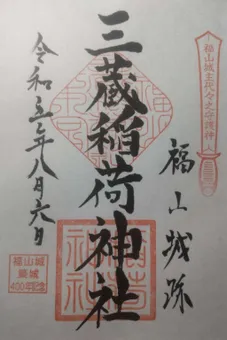 福山城主代々之守護神
福山城跡
三蔵稲荷神社
令和五年八月六日
福山城
築城
400年記念